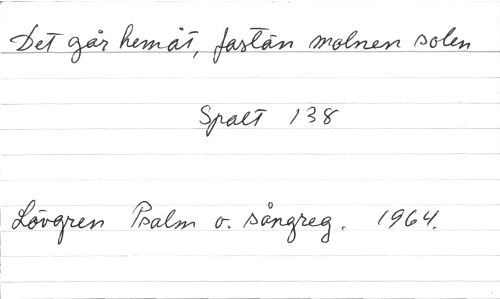 Det går hemåt, fastän molnen solen
Spalt 138
Lövgren Psalm o. sångreg. 1964.